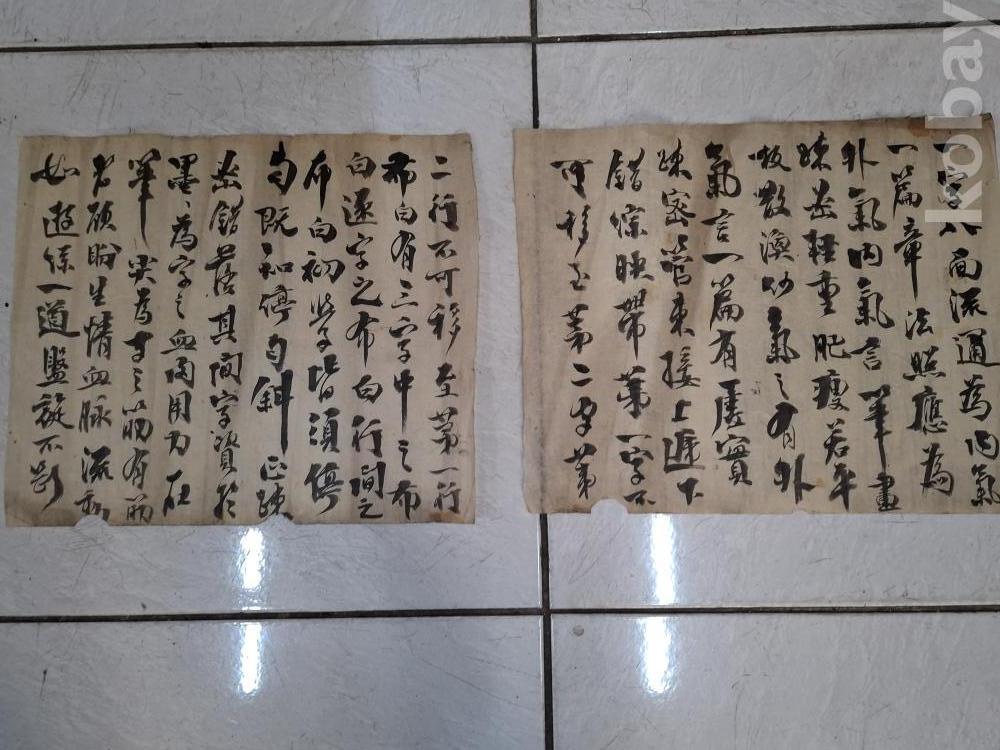 一字八面流通為內氣
一篇章法照應為
外氣內氣言筆畫
疎密輕重肥瘦若平
板散渙何氣之有外
氣言一篇有虛實
疎密管束接上遞下
錯綜映帶第一字不
可移至第二字第
二行不可移至第一行
布白有三字中之布
白逐字之布白行間之
布白初學皆須停
勻既知停勻斜正疎
密錯落其間字資於
墨墨為字之血用力在
筆筆為字之筋有筋
者顧盼生情血脈流動
如遊絲一道盤旋不斷
kobay